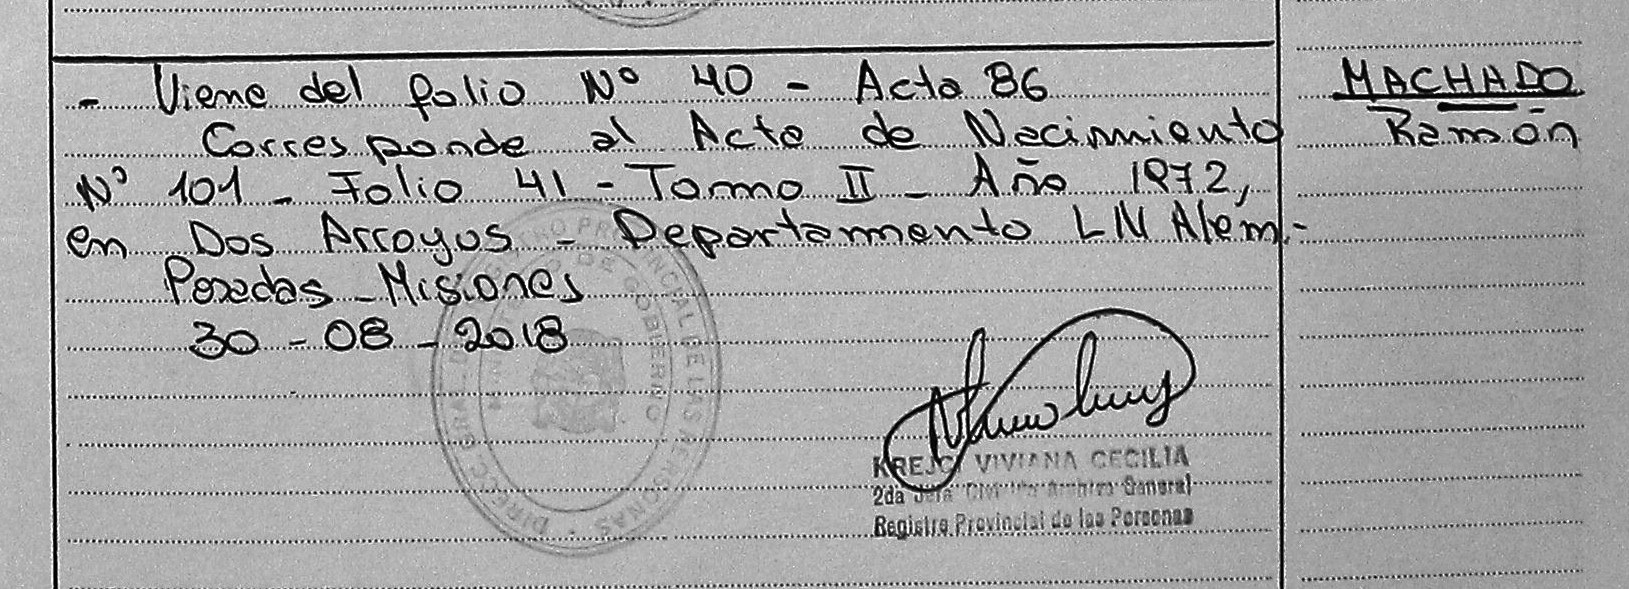 - Viene del folio Nº 40 - Acta 86
Corresponde al Acta de Nacimiento
Nº 101 - Folio 41 - Tomo II - Año 1972,
en Dos Arroyos - Departamento LN Alem.-
Posadas - Misiones
30 - 08 - 2018
MACHADO
Ramón
KREJCI VIVIANA CECILIA
2da Jefa Archivo General
Registro Provincial de las Personas
PROVINCIAL DE LAS PERSONAS
DE GOBIERNO